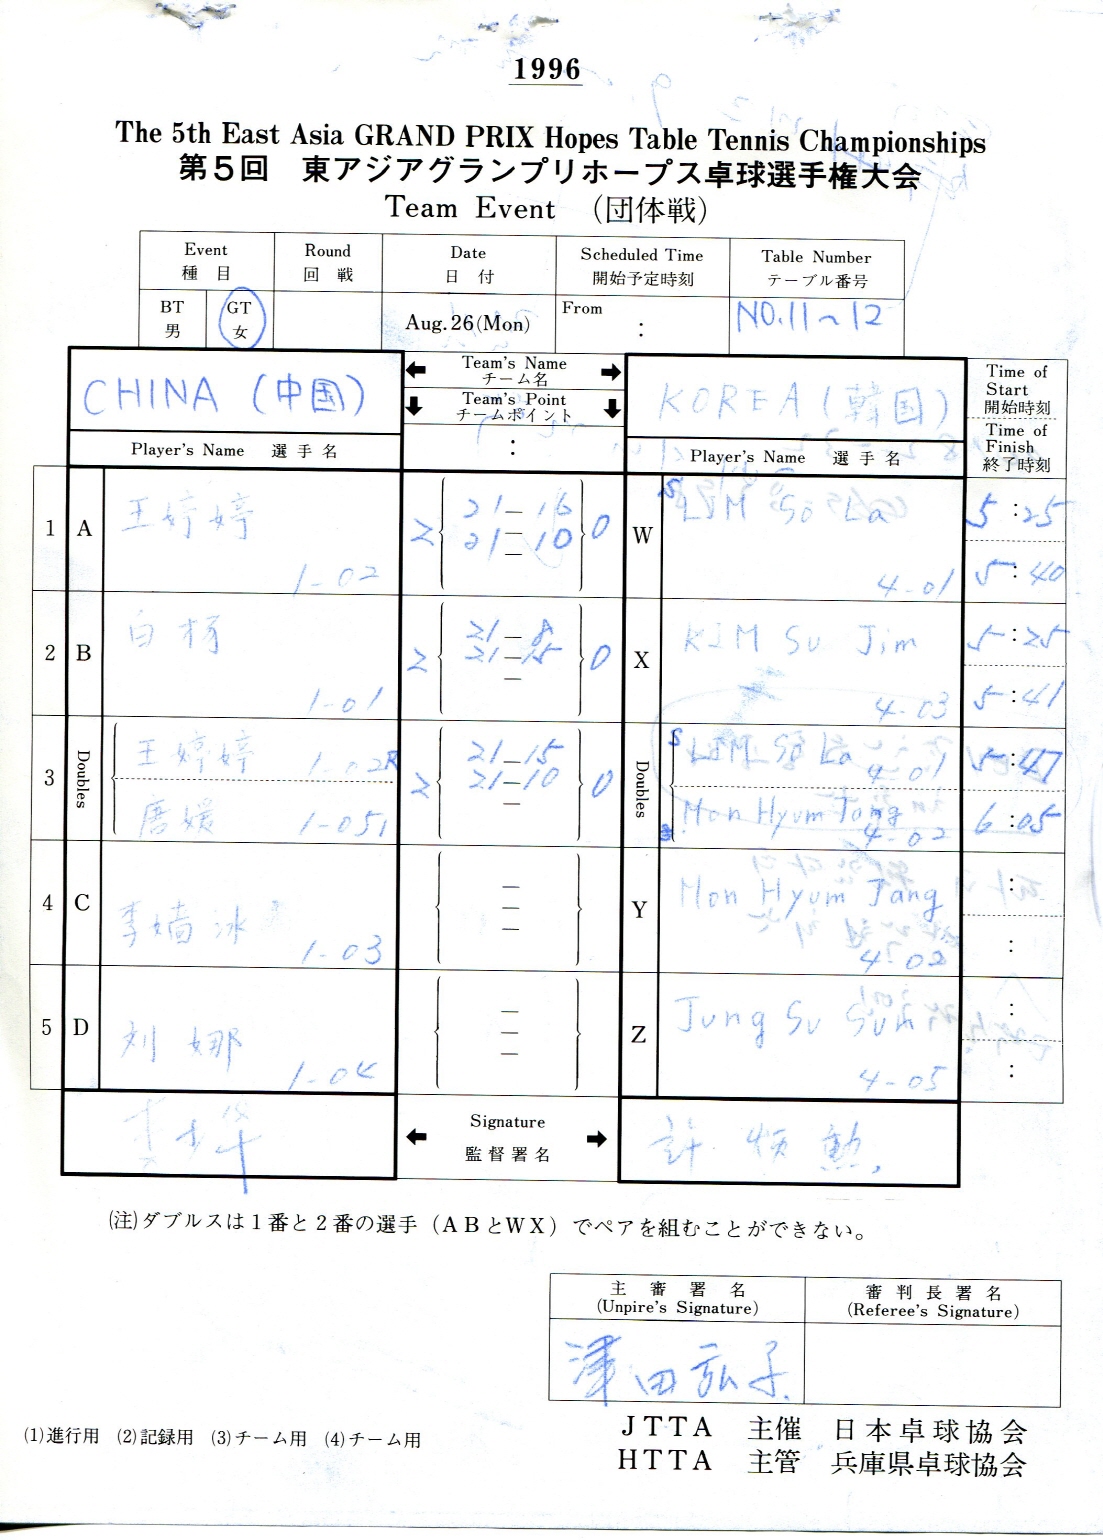 1996
The 5th East Asia GRAND PRIX Hopes Table Tennis Championships
第5回 東アジアグランプリホープス卓球選手権大会
Team Event （団体戦）
Event Round Date Scheduled Time Table Number
種目 回戦 日付 開始予定時刻 テーブル番号
BT GT Aug.26(Mon) From : NO.11～12
男 女
CHINA (中国) Team's Name チーム名 KOREA (韓国) Time of Start 開始時刻
Team's Point チームポイント Time of Finish 終了時刻
Player's Name 選手名 : Player's Name 選手名
1 A 王婷婷 1-02 2 21－16 0 W LIM So La 4-01 5:25
21－10 5:40
－
2 B 白杨 1-01 2 21－8 0 X KIM Su Jim 4-03 5:25
21－15 5:41
－
3 Doubles 王婷婷 1-02R 2 21－15 0 Doubles S LIM So La 4-01 5:47
唐媛 1-05 21－10 Mon Hyum Jang 4-02 6:05
－
4 C 李嫱冰 1-03 － Y Mon Hyum Jang 4-02 :
－ :
－
5 D 刘娜 1-04 － Z Jung Su Sun 4-05 :
－ :
－
Signature 許炳勲
監督署名
(注)ダブルスは1番と2番の選手（ABとWX）でペアを組むことができない。
主審署名 審判長署名
(Unpire's Signature) (Referee's Signature)
津田弘子
JTTA 主催 日本卓球協会
(1)進行用 (2)記録用 (3)チーム用 (4)チーム用
HTTA 主管 兵庫県卓球協会